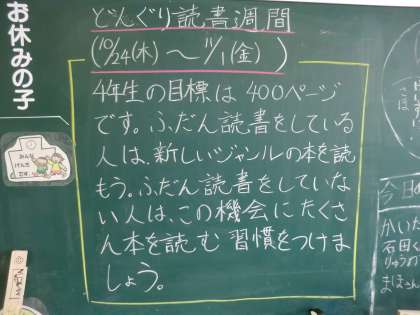 お休みの子
どんぐり読書週間
(10/24(木)～11/1(金))
4年生の目標は400ページ
です。ふだん読書をしている
人は、新しいジャンルの本を読
もう。ふだん読書をしていな
い人は、この機会にたくさ
ん本を読む習慣をつけま
しょう。
みんな
げんき
です。
今日
かいた
石田く
りゅうの
まほさん